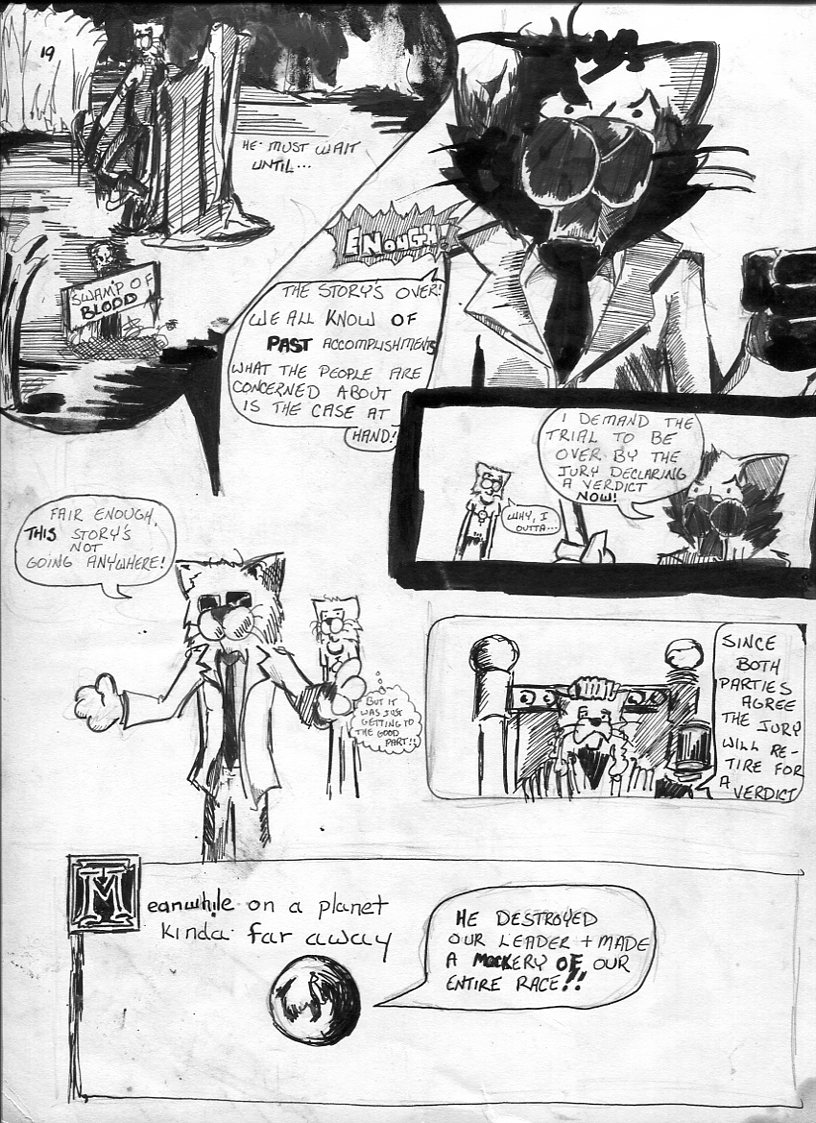 19
HE MUST WAIT
UNTIL...
SWAMP OF
BLOOD
ENOUGH!
THE STORY'S OVER!
WE ALL KNOW OF
PAST ACCOMPLISHMENTS
WHAT THE PEOPLE ARE
CONCERNED ABOUT
IS THE CASE AT
HAND!
I DEMAND THE
TRIAL TO BE
OVER BY THE
JURY DECLARING
A VERDICT
NOW!
WHY, I
OUTTA...
FAIR ENOUGH,
THIS STORY'S
NOT
GOING ANYWHERE!
BUT IT
WAS JUST
GETTING TO
THE GOOD
PART!!
SINCE
BOTH
PARTIES
AGREE
THE JURY
WILL RE-
TIRE FOR
A VERDICT
Meanwhile on a planet
kinda far away
HE DESTROYED
OUR LEADER + MADE
A MOCKERY OF OUR
ENTIRE RACE!!